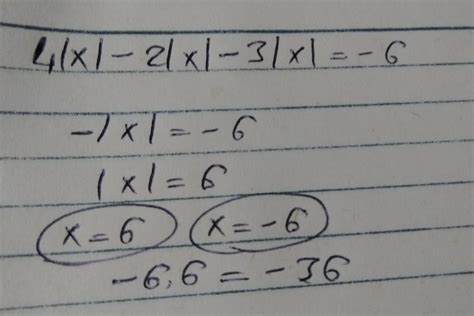 4|x| - 2|x| - 3|x| = -6
-|x| = -6
|x| = 6
x = 6 x = -6
-6.6 = -36